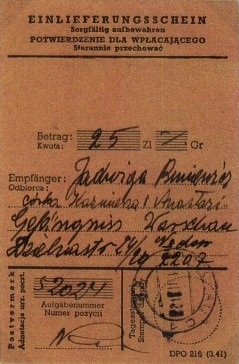 EINLIEFERUNGSSCHEIN
Sorgfältig aufbewahren
POTWIERDZENIE DLA WPŁACAJĄCEGO
Starannie przechować
Betrag:
Kwota:
25 Zl Gr
Empfänger: Jadwiga
Odbiorca: córka Kazimierza i
Gefängnis Warschau
24/26
2207
Postvermerk
Adnotacje urz. poczt.
2024
Aufgabenummer
Numer pozycji
Tagesstempel
DPO 216 (3.41)